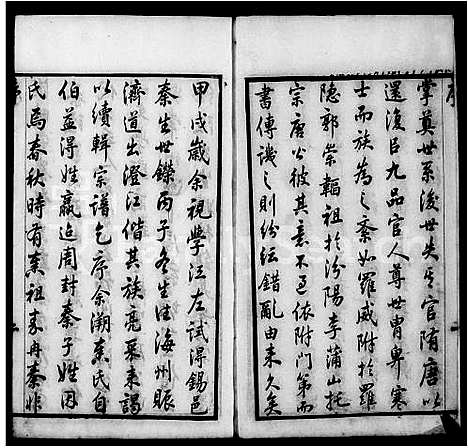 序
掌奠世系後世失其官隋唐以
還復臣九品官人尊世胄卑寒
士而族為之紊如羅威附於羅
隱郭崇韜祖於汾陽李蒲山托
宗唐公彼其意不過依附門第而
書傳譏之則紛紜錯亂由來久矣
甲戌歲余視學江左試得錫邑
秦生世鏷丙子冬生往海州賑
濟道出澄江偕其族亮采來謁
以續輯宗譜乞序余溯秦氏自
伯益得姓嬴迨周封秦子姓因
氏焉春秋時有秦祖秦冉秦非
序